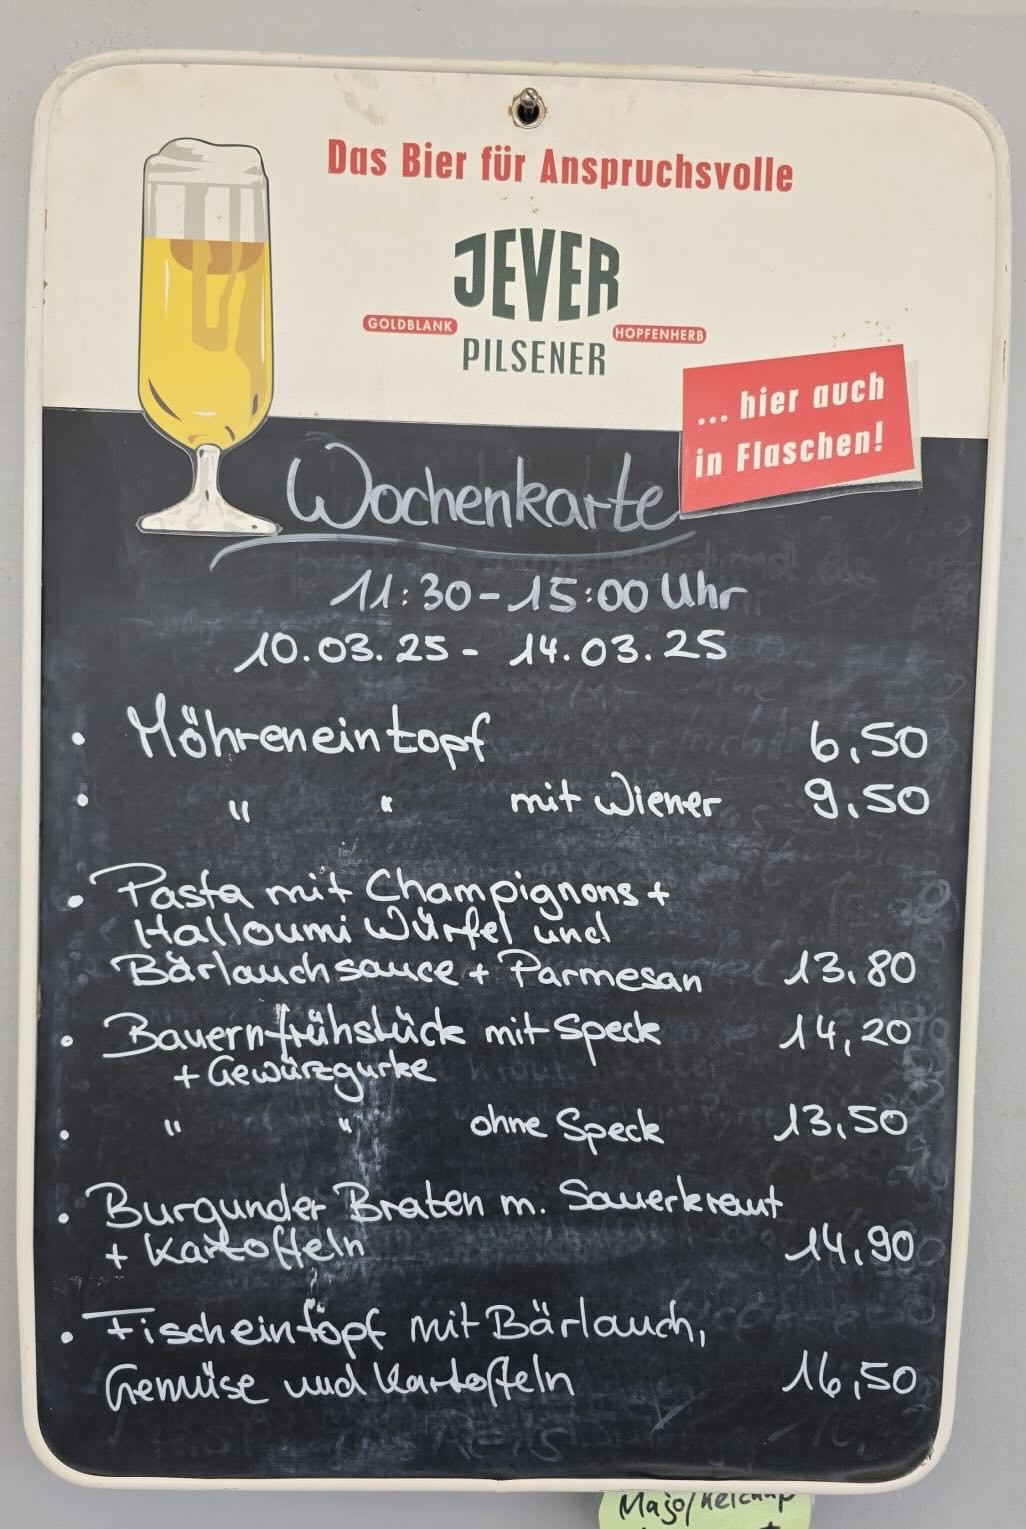 Das Bier für Anspruchsvolle
JEVER
GOLDBLANK HOPFENHERB
PILSENER
... hier auch
in Flaschen!
Wochenkarte
11:30-15:00 Uhr
10.03.25 - 14.03.25
• Möhreneintopf 6,50
• " " mit Wiener 9,50
• Pasta mit Champignons +
Halloumi Würfel und
Bärlauchsauce + Parmesan 13,80
• Bauernfrühstück mit Speck 14,20
+ Gewürzgurke
• " " ohne Speck 13,50
• Burgunder Braten m. Sauerkraut
+ Kartoffeln 14,90
• Fischeintopf mit Bärlauch,
Gemüse und Kartoffeln 16,50
Majo/Ketchup